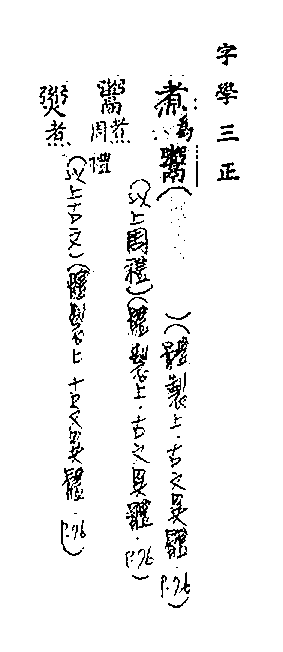 字學三正
煮為鬻( )(體製上.古文異體.P.76)
鬻煮周禮(以上周禮)(體製上.古文異體.P.76)
煮(以上古文)(體製上.古文異體.P.76)